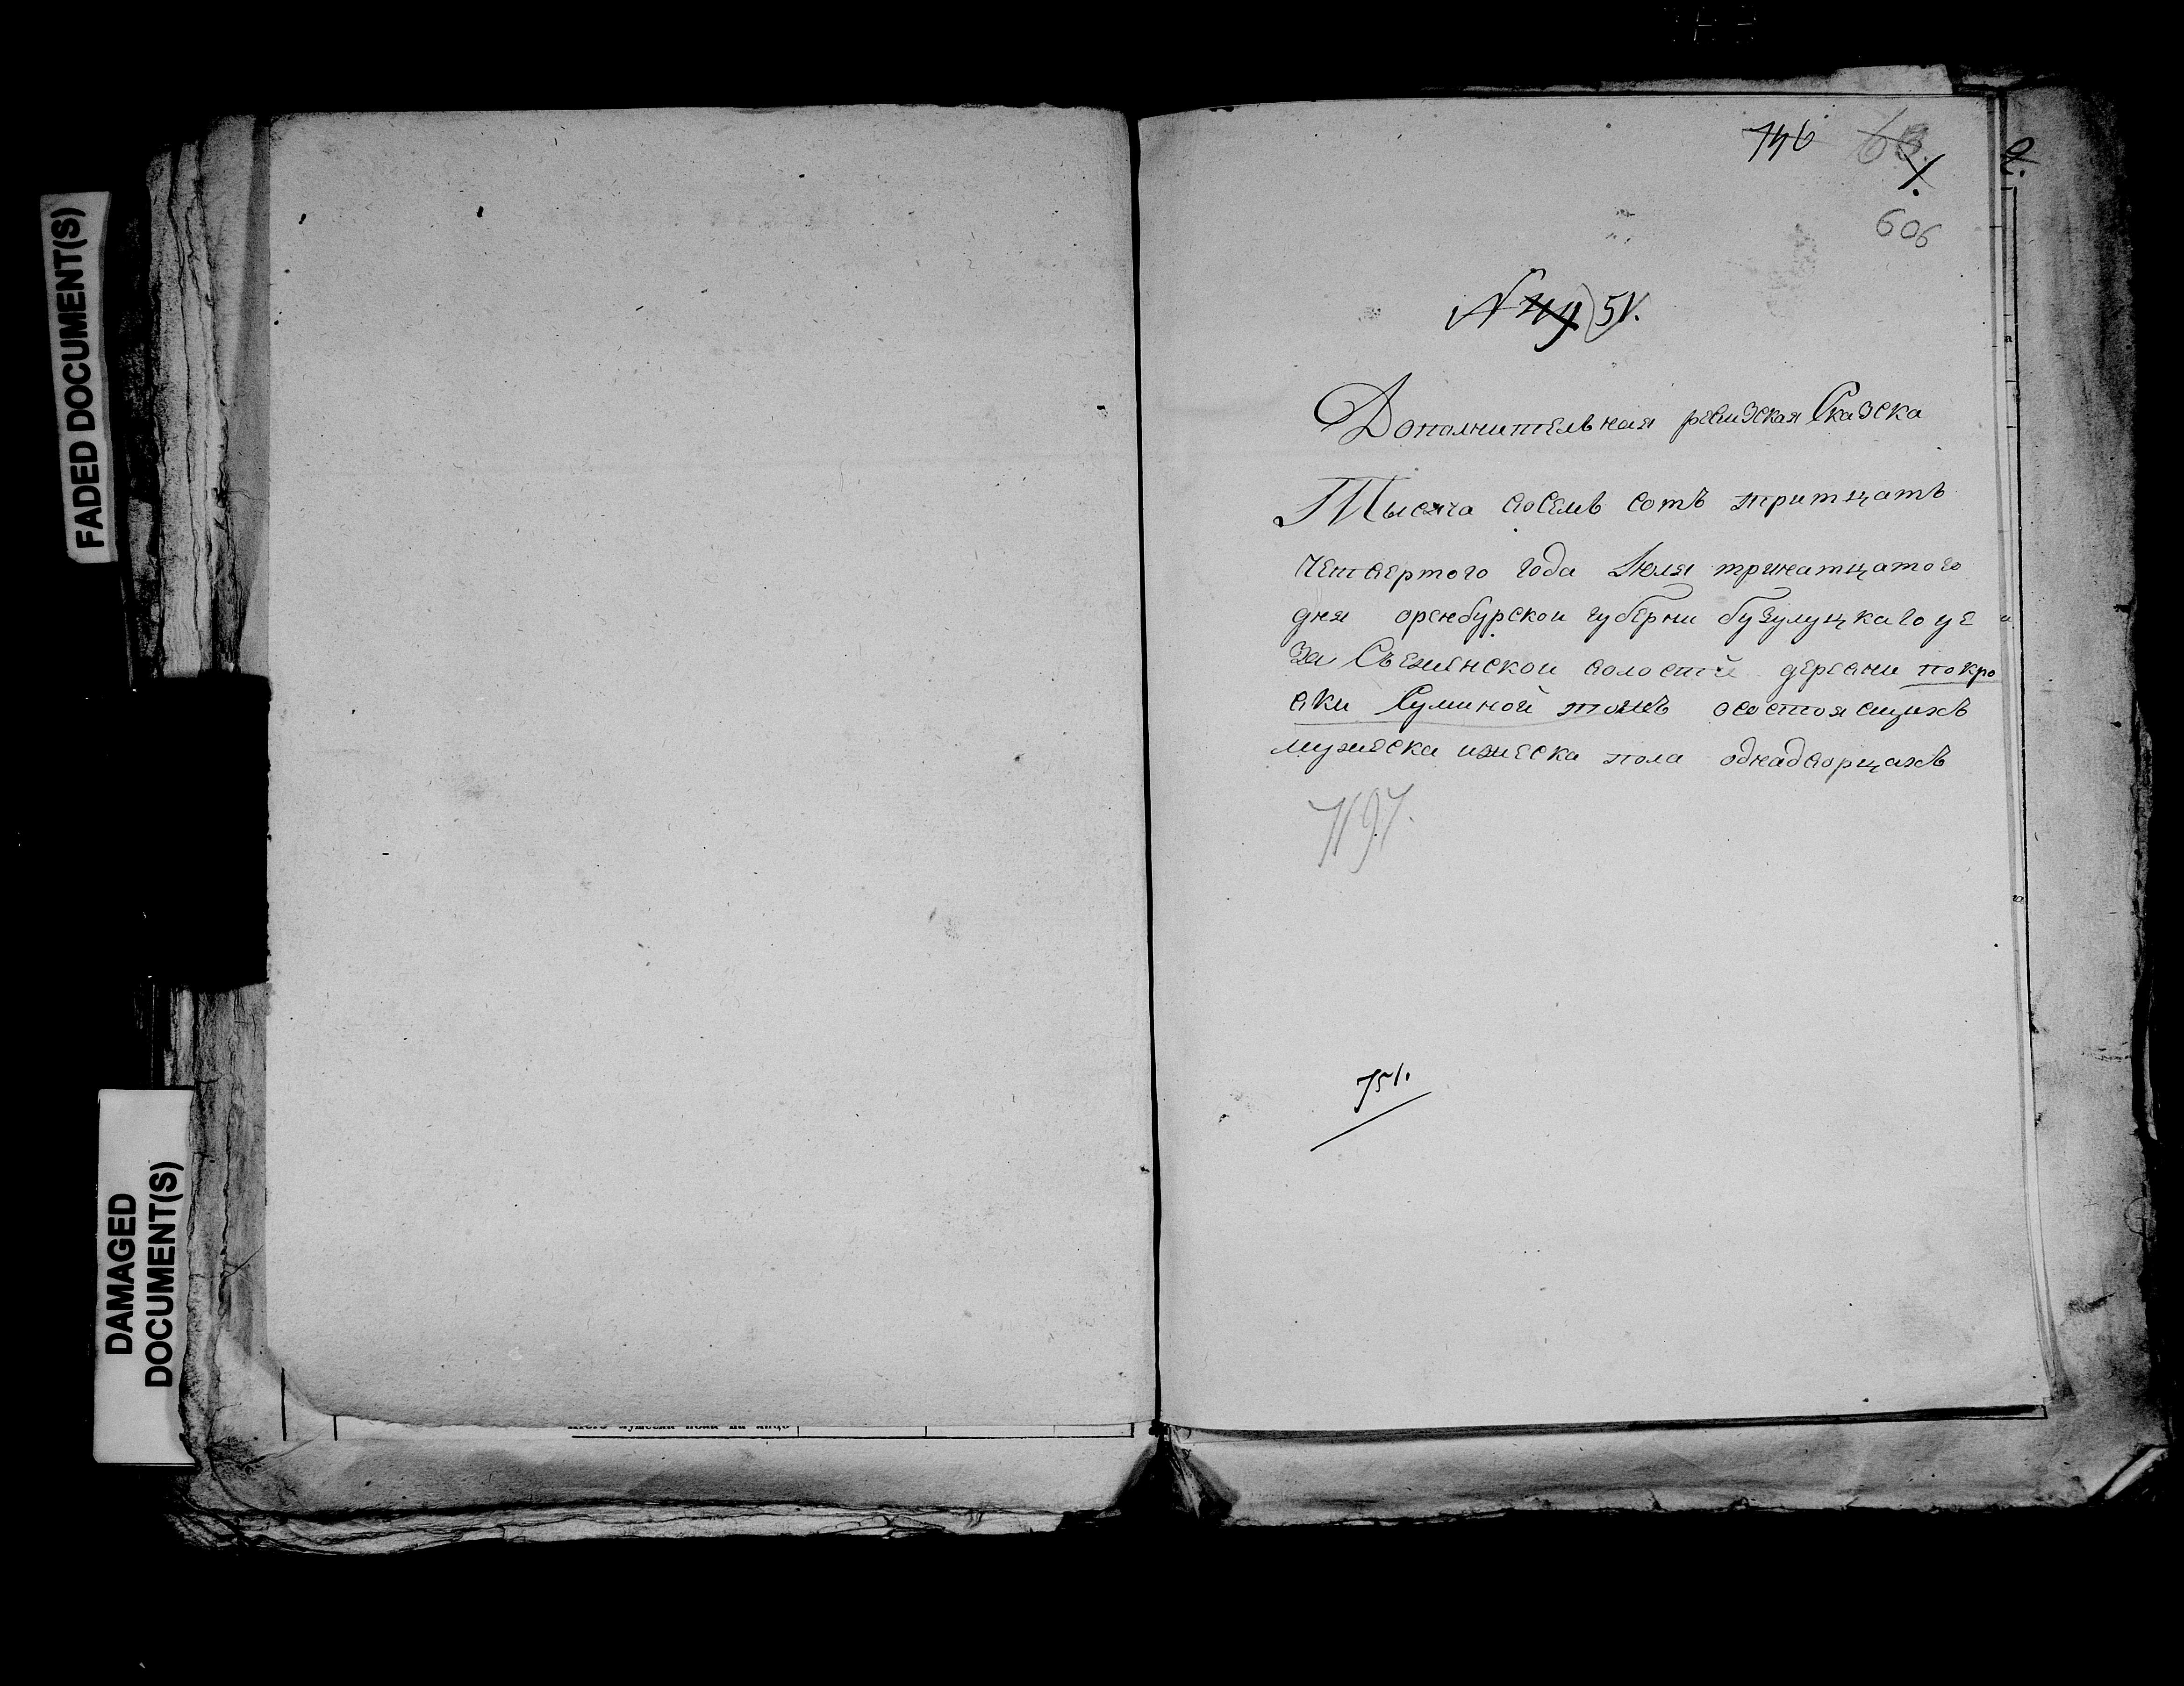 FADED DOCUMENT(S)
DAMAGED
DOCUMENT(S)
746
1.
606
2.
N 49 51.
Дополнительная ревизская Сказска
Тысяча восемь сотъ тритцать
четвертого года Июля тринатцатого
дня оренбурской губерни бузулуцкаго уе
за Съезженской волости деревни покро
вки Суминой тожъ осостоящихъ
мужеска ижеска пола однадворцахъ
7197.
751.